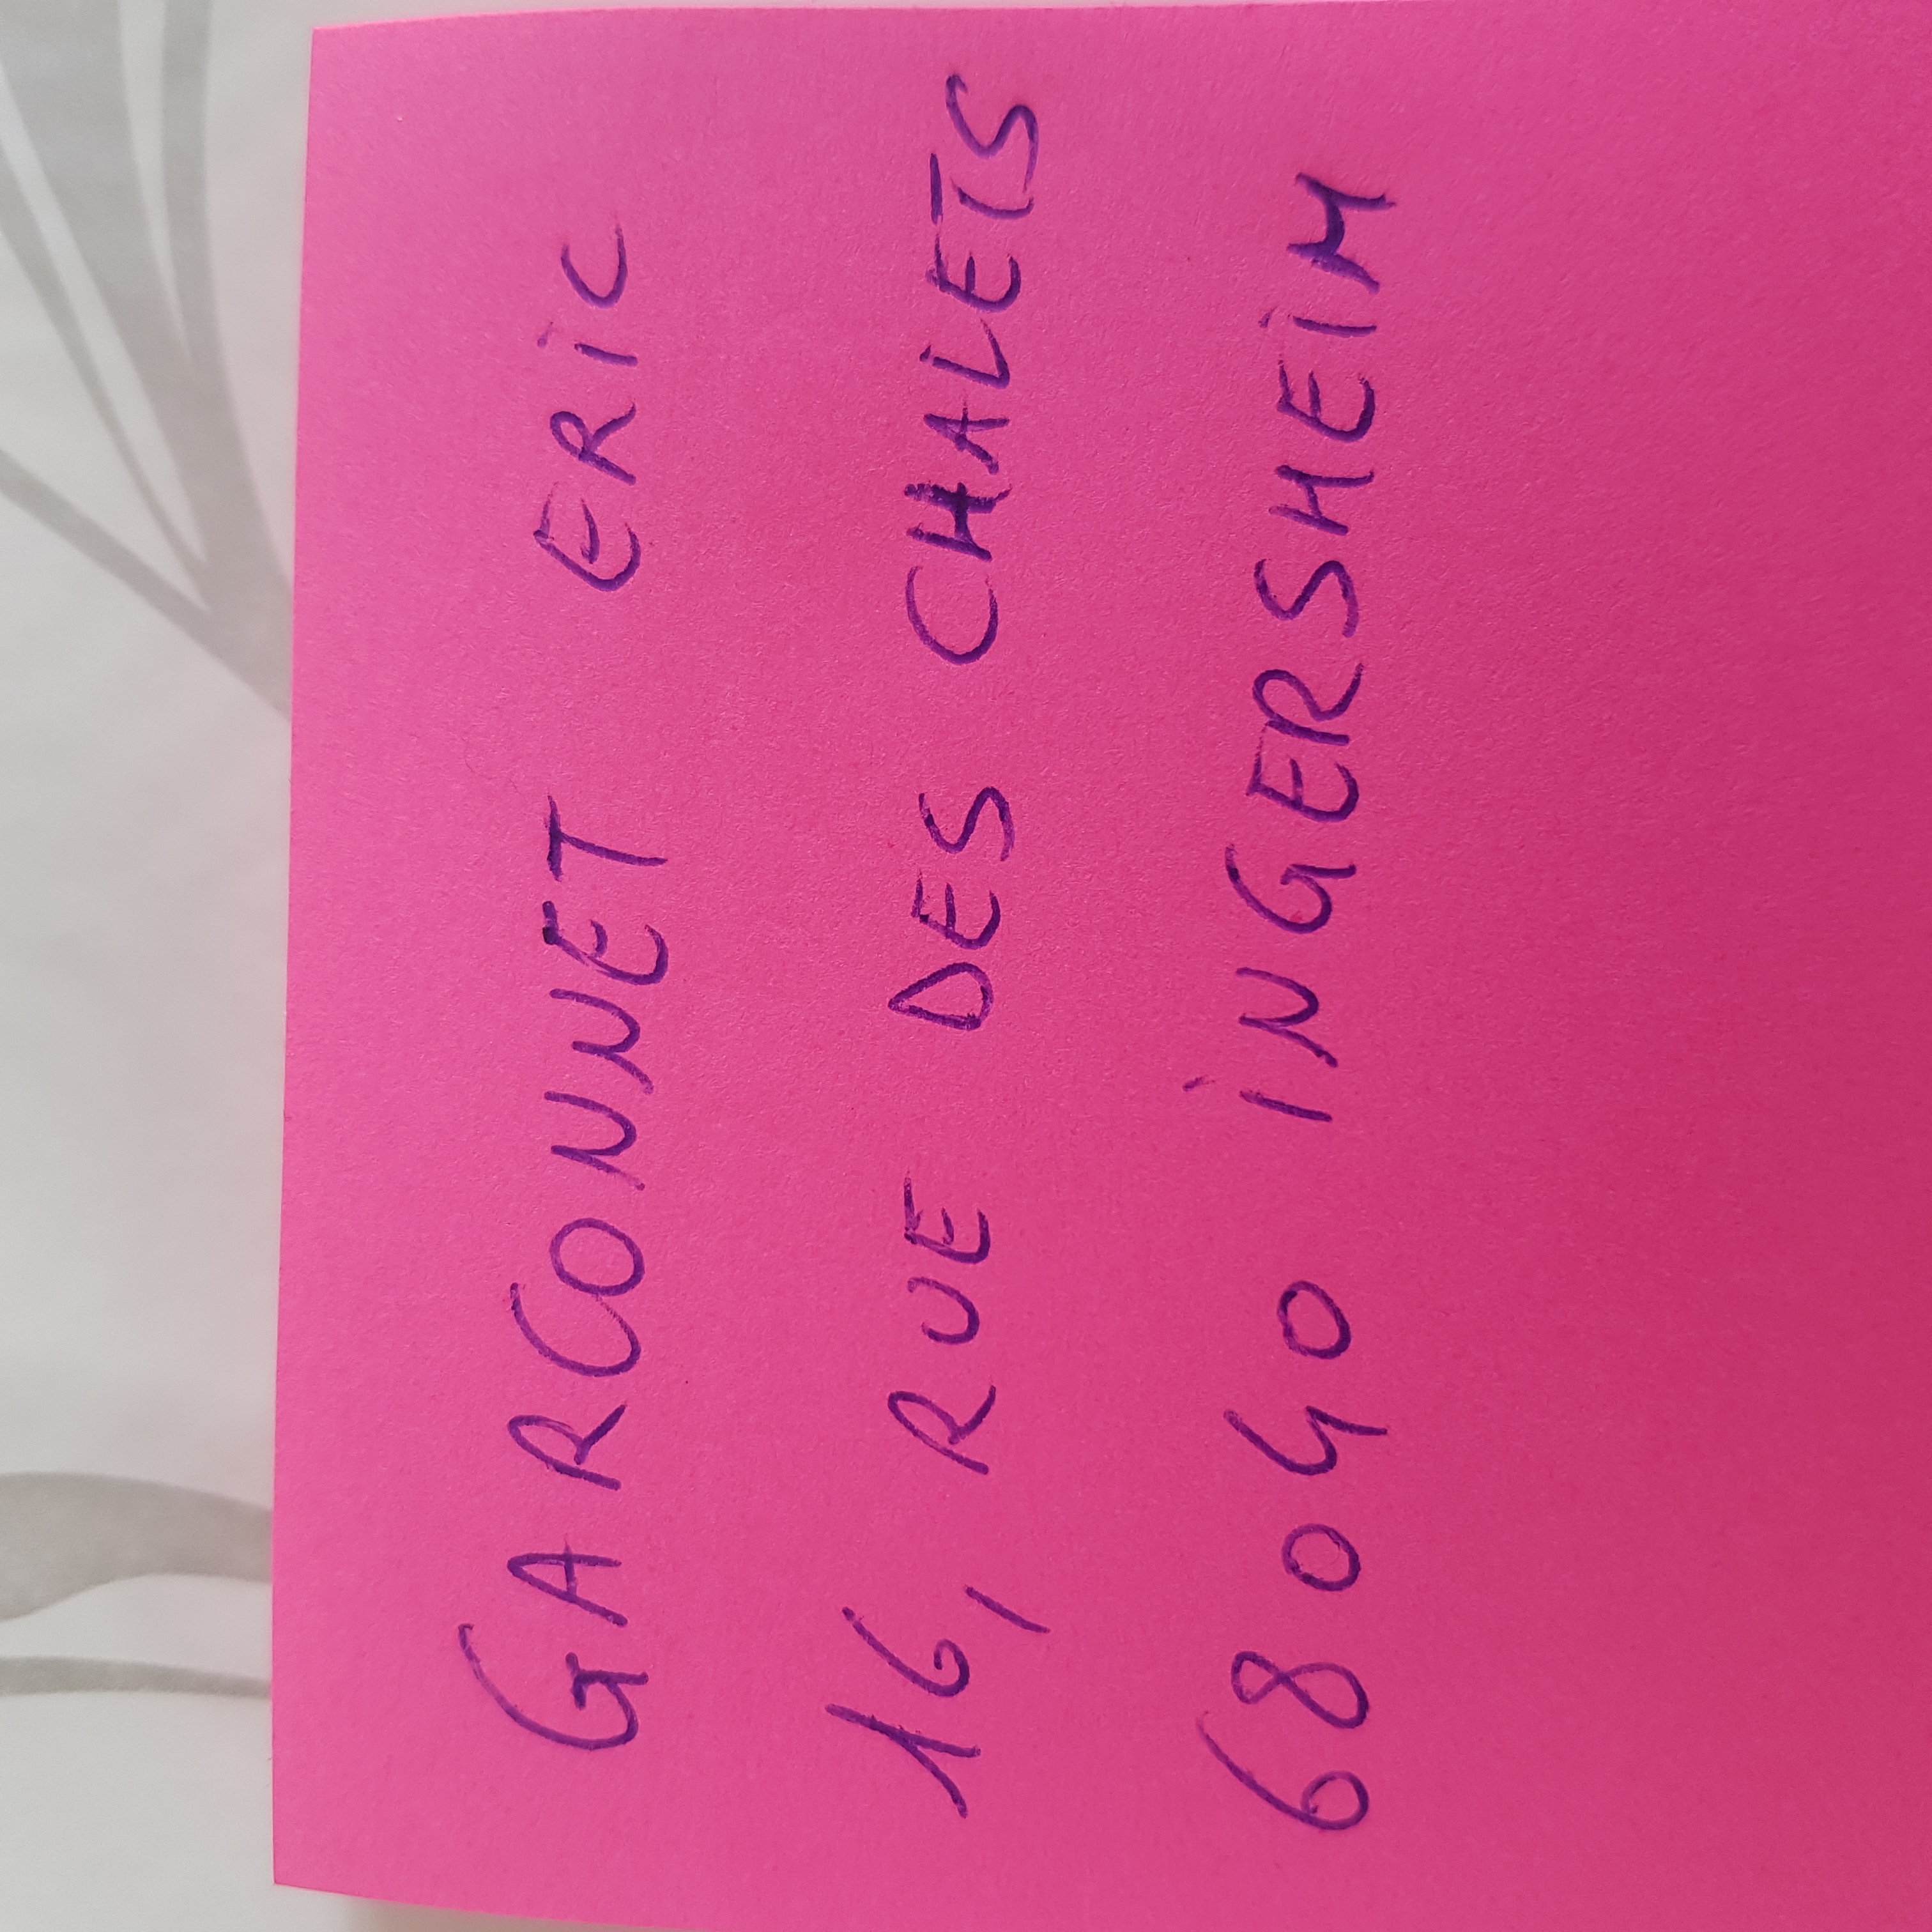 GARCONNET ERiC
16, RUE DES CHALETS
68040 iNGERSHEiM